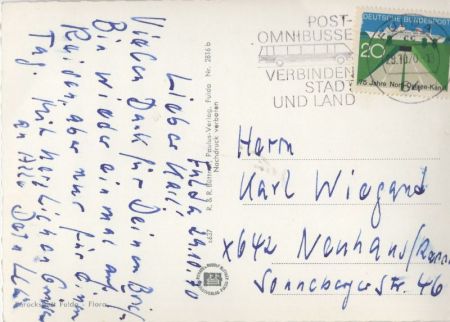 Fulda, 29.10.70
Lieber Karl,
Vielen Dank für Deinen Brief.
Bin wieder einmal auf
Reisen, aber nur für einen
Tag. Mit herzlichen
an Alle Dein
Barockstadt Fulda Flora
6637 R. & R. Büttner, Paulus-Verlag, Fulda Nr. 2816 b
Nachdruck verboten
POST-
OMNIBUSSE
VERBINDEN
STADT
UND LAND
DEUTSCHE BUNDESPOST
20
75 Jahre Nord-Ostsee-Kanal
Herrn
Karl Wiegand
x642 Neuhaus/
Sonneberger Str. 46